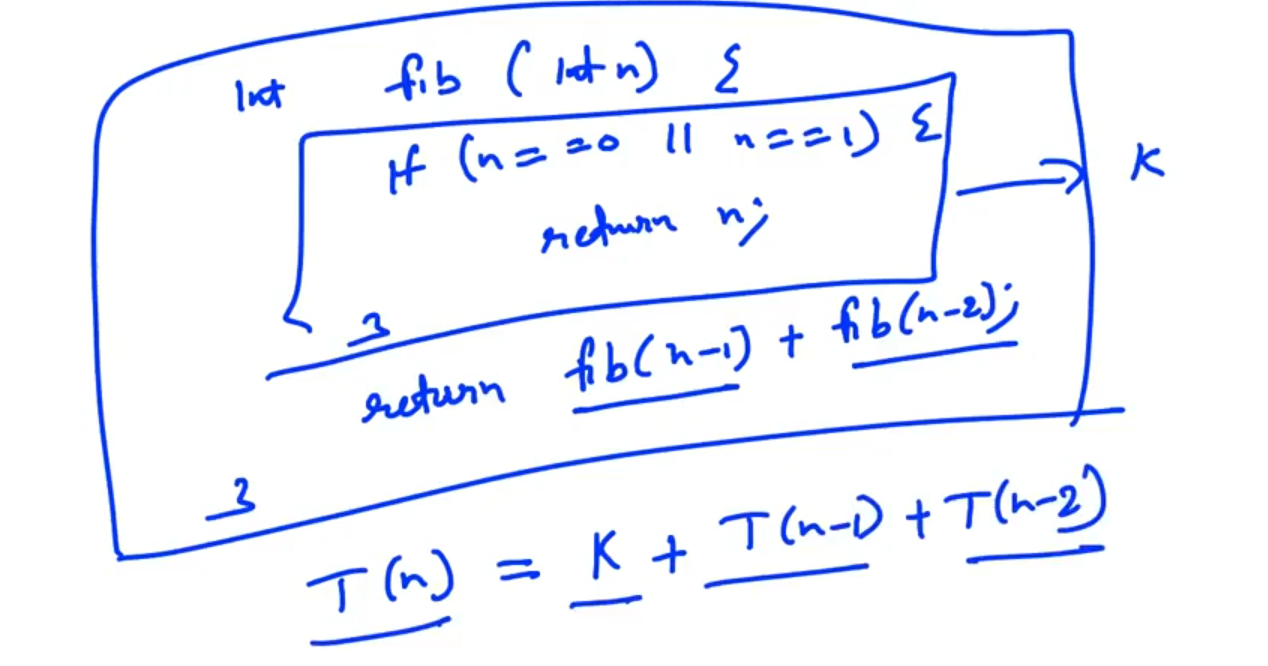 Int fib (Int n) {
If (n==0 || n==1) {
return n;
}
K
return fib(n-1) + fib(n-2);
}
T(n) = K + T(n-1) + T(n-2)